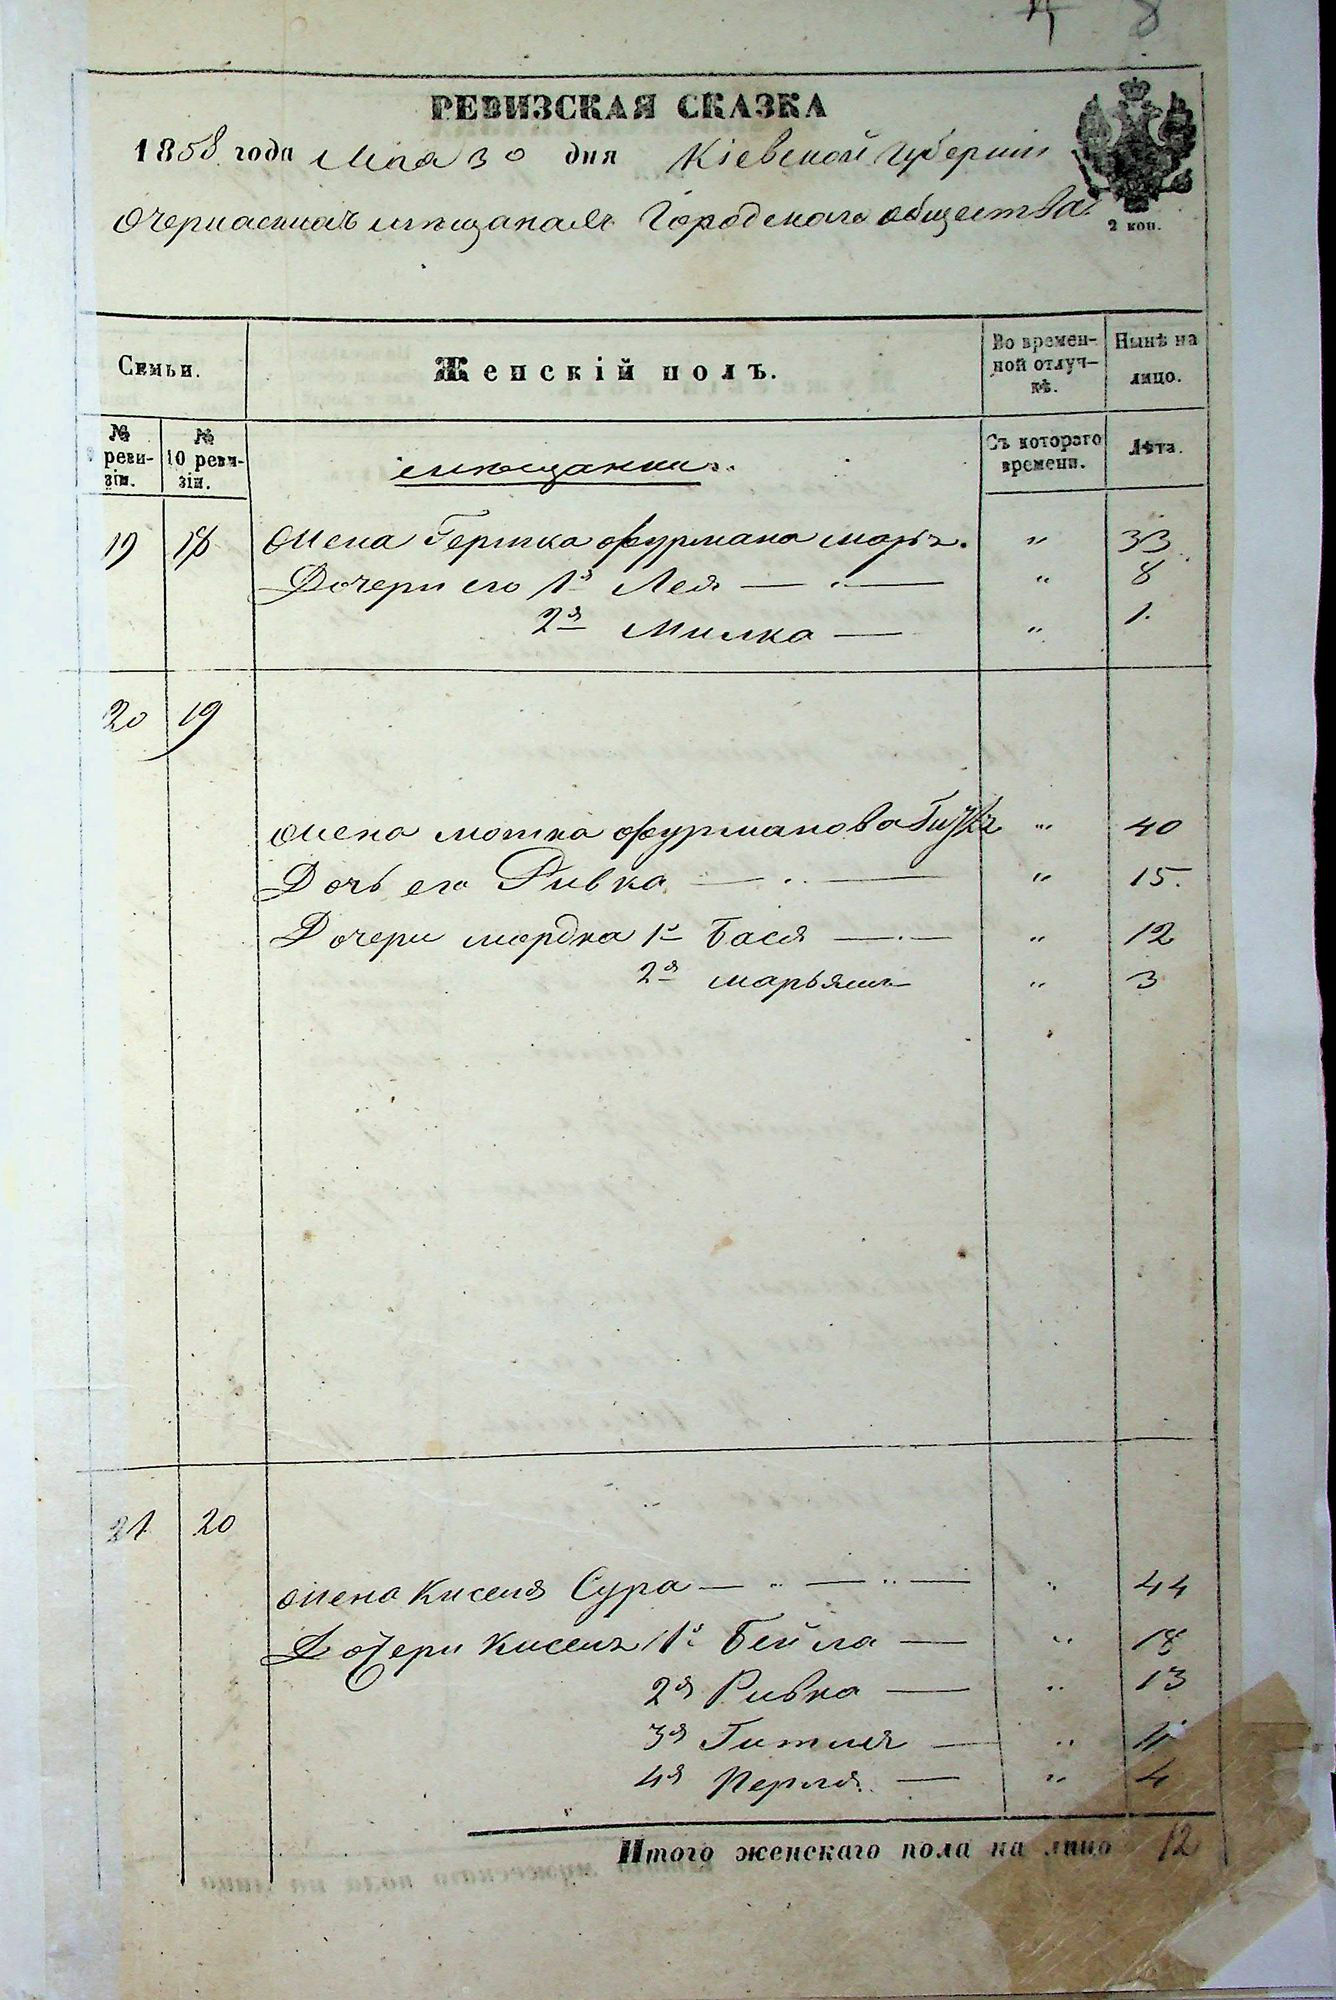 8
РЕВИЗСКАЯ СКАЗКА
1858 года Мая 30 дня Кіевской Губерніи
Городскаго общества
2 коп.
Семьи.
Женскій полъ.
Во времен-
ной отлуч-
кѣ.
Нынѣ на
лицо.
№
реви-
зіи.
№
10 реви-
зіи.
мѣщанки
Съ котораго
времени.
Лѣта.
19 18 Жена Гершка Фурмана „ 33
Дочери его 1я Лея — „ — „ 8
2я Милка — „ 1.
20 19
Жена Мошка Фурманова „ 40
Дочь его Ривка — „ — „ 15.
Дочери Мордка 1я Бася — „ — „ 12
2я Марьямъ „ 3
21 20
Жена Киселя Сура — „ — „ — „ 44
Дочери Киселя 1я Бейла — „ 18
2я Ривка — „ 13
3я Гитля — „ 11
4я Перля — „ 4
Итого женскаго пола на лицо 12